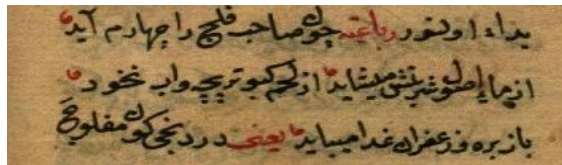 بداء اولنور رباعیه چون صاحب فلج را چهارم آید
از ماء اصول شربتش میشاید از لحم کبوتر بچه واب نخود
با زیره وزعفران غدا میباید یعنی در دنجی کون مفلوجه